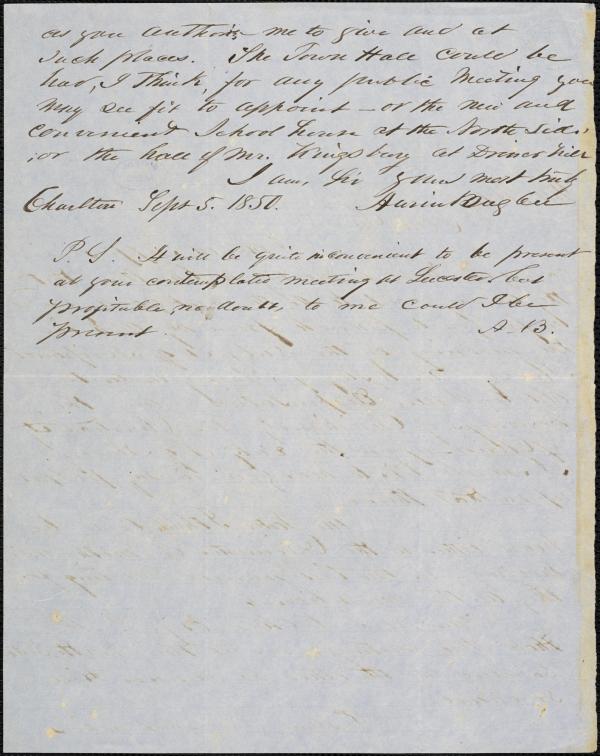 as you authorize me to give and at
such places. The Town Hall could be
had, I think, for any public meeting you
may see fit to appoint – or the new and
convenient School house at the North side,
or the hall of Mr. Kingsbury at
I am, Sir yours most truly
Charlton Sept 5. 1850.
P. S. It will be quite inconvenient to be present
at your contemplated meeting at Leicester, but
profitable, no doubt, to me could I be
present. A. B.